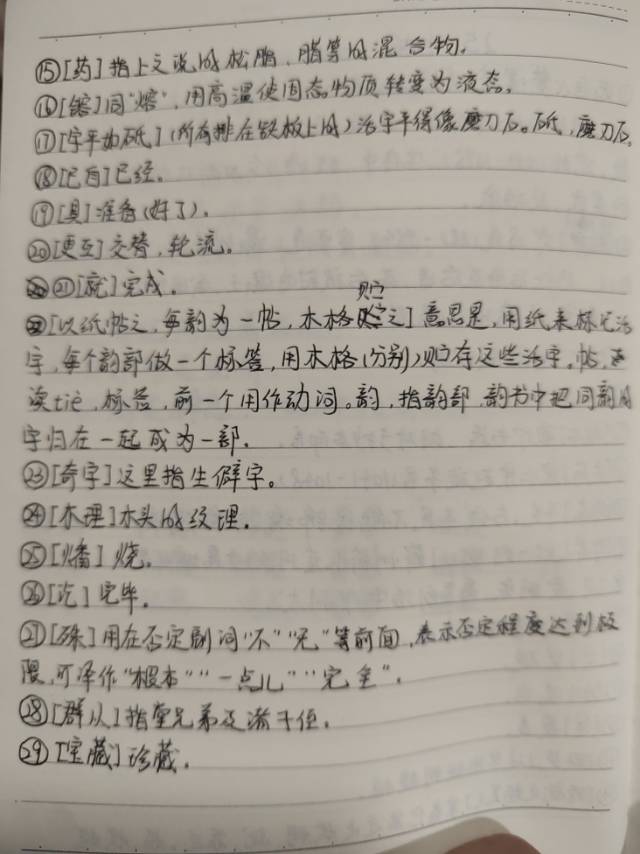 ⑮[药]指上文说的松脂、脂等的混合物。
⑯[镕]同“熔”,用高温使固态物质转变为液态。
⑰[字平如砥](所有排在铁板上的)活字平得像磨刀石。砥,磨刀石。
⑱[已后]已经。
⑲[具]准备(好了)。
⑳[更互]交替,轮流。
㉑[就]完成。
贮
㉒[以纸帖之,每韵为一帖,木格贮之]意思是,用纸来标记活
字,每个韵部做一个标签,用木格(分别)贮存这些活字。帖,
读tiē,标签,前一个用作动词。韵,指韵部 韵书中把同韵的
字归在一起成为一部。
㉓[奇字]这里指生僻字。
㉔[木理]木头的纹理。
㉕[燔]烧。
㉖[讫]完毕。
㉗[殊]用在否定副词“不”“无”等前面,表示否定程度达到极
限,可译作“根本”“一点儿”“完全”。
㉘[群从]指堂兄弟及诸子侄。
㉙[宝藏]珍藏。